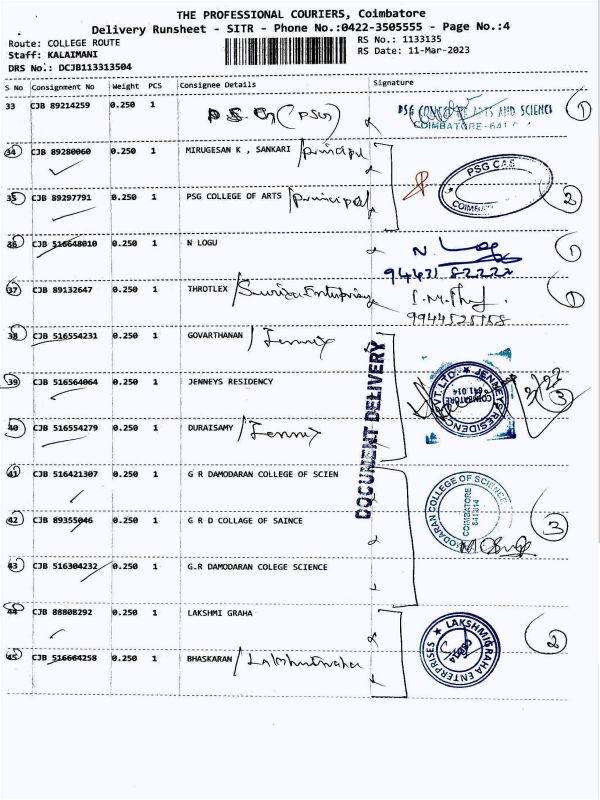 THE PROFESSIONAL COURIERS, Coimbatore
Delivery Runsheet - SITR - Phone No.:0422-3505555 - Page No.:4
Route: COLLEGE ROUTE RS No.: 1133135
Staff: KALAIMANI RS Date: 11-Mar-2023
DRS No.: DCJB113313504
S No Consignment No Weight PCS Consignee Details Signature
33 CJB 89214259 0.250 1 P.S.G (PSG) ARTS AND SCIENCE 1
COIMBATORE-641
34 CJB 89280060 0.250 1 MIRUGESAN K , SANKARI / principal
PSG CAS
35 CJB 89297791 0.250 1 PSG COLLEGE OF ARTS / principal 2
36 CJB 516648010 0.250 1 N LOGU N. Log 1
94431 82222
37 CJB 89132647 0.250 1 THROTLEX / Surya Enterprises 1
38 CJB 516554231 0.250 1 GOVARTHANAN
39 CJB 516564064 0.250 1 JENNEYS RESIDENCY JENNEYS RESIDENCY PVT. LTD. COIMBATORE 641 014 3
40 CJB 516554279 0.250 1 DURAISAMY
DOCUMENT DELIVERY
41 CJB 516421307 0.250 1 G R DAMODARAN COLLEGE OF SCIEN
42 CJB 89355046 0.250 1 G R D COLLAGE OF SAINCE COLLEGE OF SCIENCE COIMBATORE 3
43 CJB 516304232 0.250 1 G.R DAMODARAN COLEGE SCIENCE
44 CJB 88808292 0.250 1 LAKSHMI GRAHA
LAKSHMIGRAHA ENTERPRISES 2
45 CJB 516664258 0.250 1 BHASKARAN